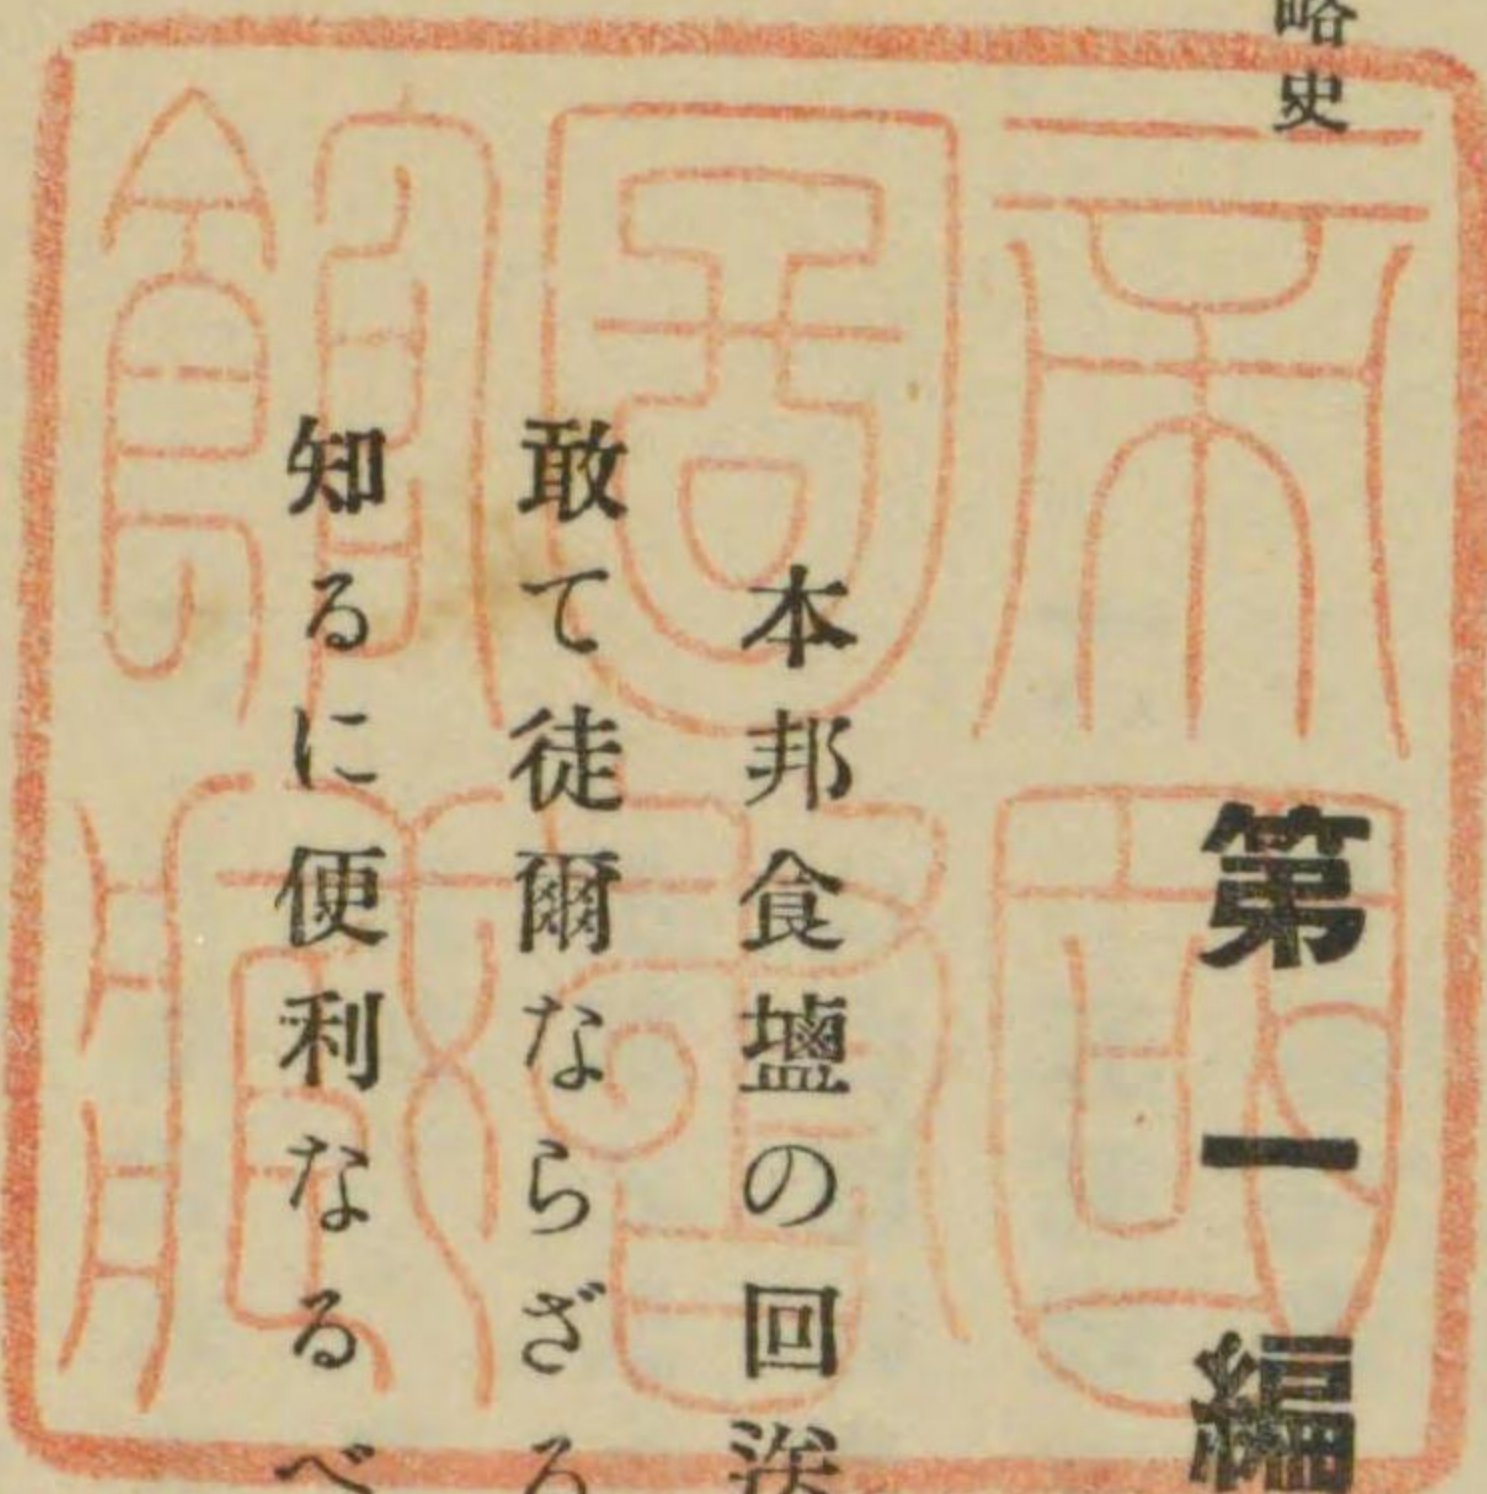 略史
第一編
本邦食鹽の回送
敢て徒爾ならざる
知るに便利なるべ
帝國圖書館藏